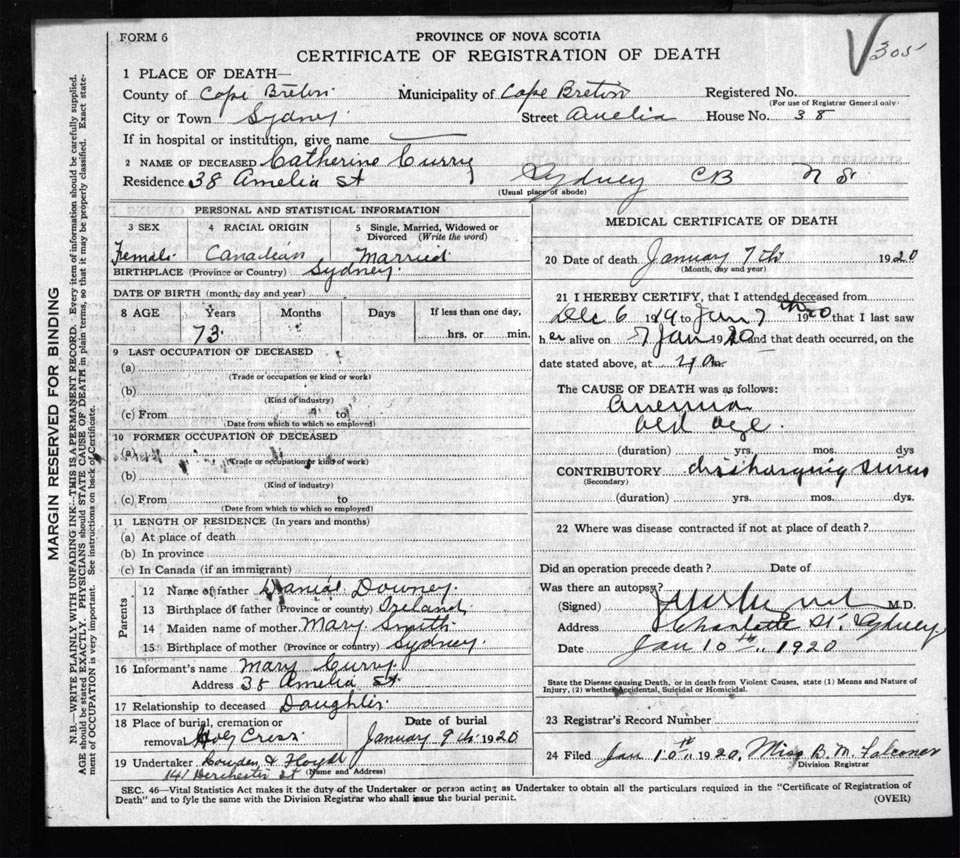 FORM 6
PROVINCE OF NOVA SCOTIA
CERTIFICATE OF REGISTRATION OF DEATH
305
1 PLACE OF DEATH—
County of Cape Breton. Municipality of Cape Breton Registered No.
(For use of Registrar General only)
City or Town Sydney Street Amelia House No. 38
If in hospital or institution, give name
2 NAME OF DECEASED Catherine Curry
Residence 38 Amelia St Sydney CB N S.
(Usual place of abode)
PERSONAL AND STATISTICAL INFORMATION
3 SEX 4 RACIAL ORIGIN 5 Single, Married, Widowed or Divorced (Write the word)
Female Canadian Married
BIRTHPLACE (Province or Country) Sydney.
DATE OF BIRTH (month, day and year)
8 AGE Years Months Days If less than one day,
73 hrs. or min.
9 LAST OCCUPATION OF DECEASED
(a)
(Trade or occupation or kind or work)
(b)
(Kind of industry)
(c) From to
(Date from which to which so employed)
10 FORMER OCCUPATION OF DECEASED
(a)
(Trade or occupation or kind of work)
(b)
(Kind of industry)
(c) From to
(Date from which to which so employed)
11 LENGTH OF RESIDENCE (In years and months)
(a) At place of death
(b) In province
(c) In Canada (if an immigrant)
Parents
12 Name of father Danial Downey.
13 Birthplace of father (Province or country) Ireland
14 Maiden name of mother Mary Smith
15 Birthplace of mother (Province or country) Sydney.
16 Informant's name Mary Curry.
Address 38 Amelia St.
17 Relationship to deceased Daughter
18 Place of burial, cremation or removal Holy Cross Date of burial January 9th 1920
19 Undertaker & Floyd
141 Dorchester St (Name and Address)
MEDICAL CERTIFICATE OF DEATH
20 Date of death January 7th 1920
(Month, day and year)
21 I HEREBY CERTIFY, that I attended deceased from
Dec 6 1919 to Jan 7 th 1920 that I last saw
her alive on 7 Jan 1920 and that death occurred, on the
date stated above, at
The CAUSE OF DEATH was as follows:
Anemia
old age.
(duration) yrs. mos. dys
CONTRIBUTORY discharging sinus
(Secondary)
(duration) yrs. mos. dys.
22 Where was disease contracted if not at place of death?
Did an operation precede death? Date of
Was there an autopsy?
(Signed) M.D.
Address Charlotte St. Sydney
Date Jan 10th, 1920
State the Disease causing Death, or in death from Violent Causes, state (1) Means and Nature of
Injury, (2) whether Accidental, Suicidal or Homicidal.
23 Registrar's Record Number
24 Filed Jan 10th, 1920, Miss B. M. Falconer
Division Registrar
SEC. 46—Vital Statistics Act makes it the duty of the Undertaker or person acting as Undertaker to obtain all the particulars required in the "Certificate of Registration of
Death" and to fyle the same with the Division Registrar who shall issue the burial permit. (OVER)
MARGIN RESERVED FOR BINDING
N.B.—WRITE PLAINLY WITH UNFADING INK—THIS IS A PERMANENT RECORD. Every item of information should be carefully supplied.
AGE should be stated EXACTLY. PHYSICIANS should STATE CAUSE OF DEATH in plain terms, so that it may be properly classified. Exact state-
ment of OCCUPATION is very important. See instructions on back of Certificate.